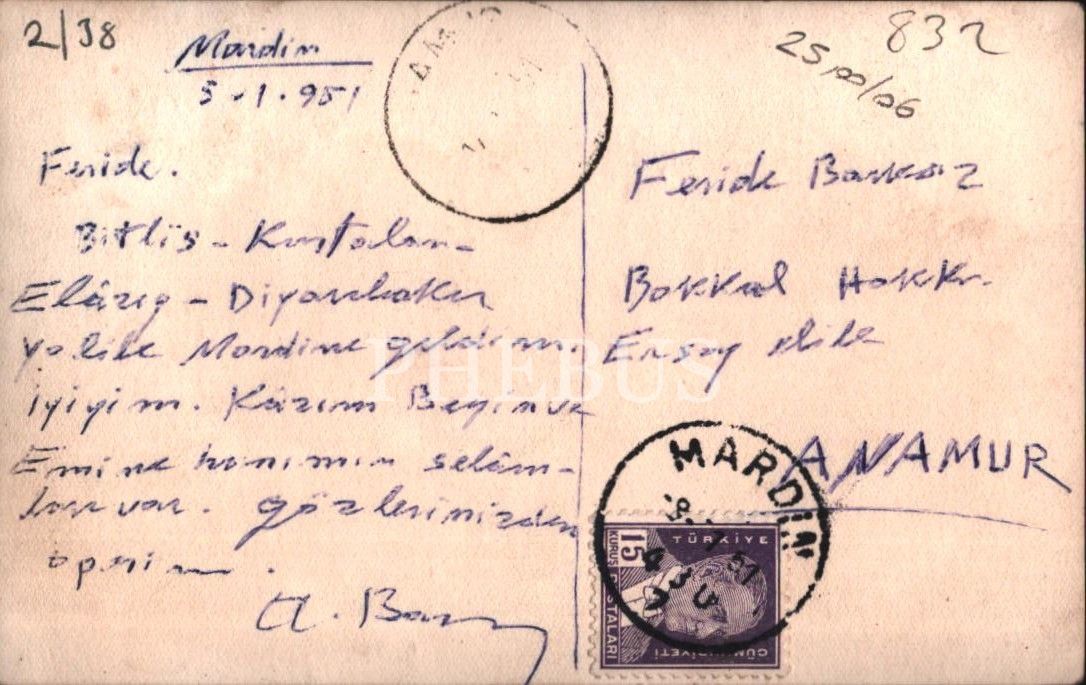 2/38
Mardin
5.1.951
Feride.
Bitlis - Kurtalan -
Elâzığ - Diyarbakır
yolile Mardine geldim.
iyiyim. Kâzım Beyin ve
Emine hanımın selâm-
ları var. gözlerinizden
öperim.
832
2500/06
Feride
Bakkal Hakkı
Ersoy elile
ANAMUR
PHEBUS
MARDİN
8.1.51
TÜRKİYE
15
KURUŞ
POSTALARI
CUMHURİYETİ